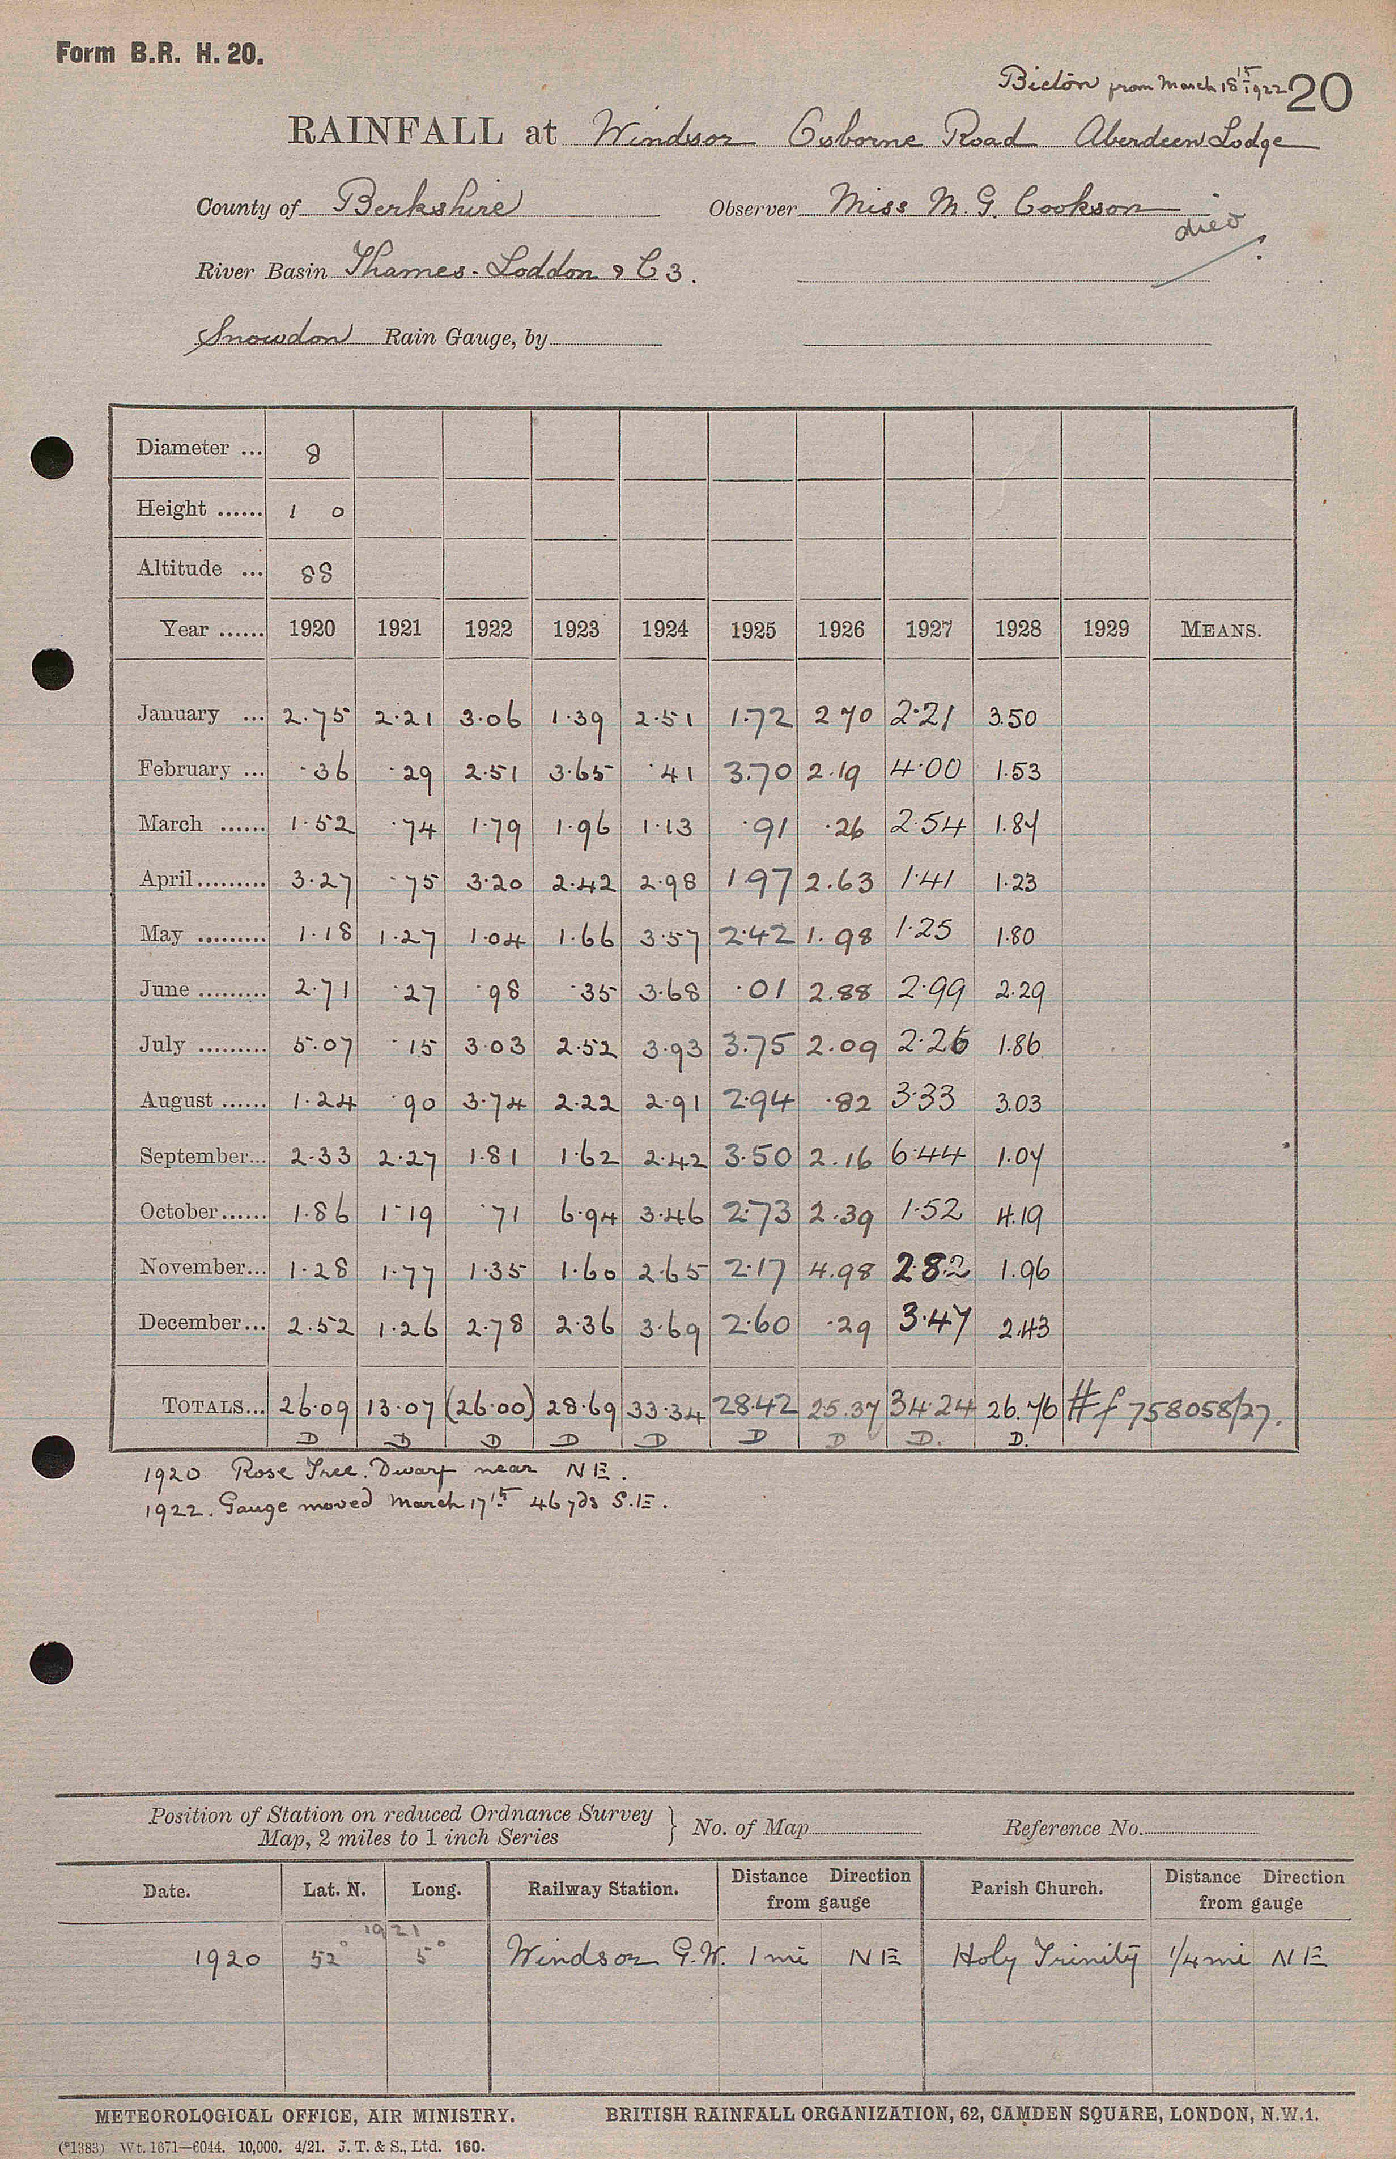 Form B.R. H. 20.
Bicton from March 18th 1922 20
RAINFALL at Windsor Osborne Road Aberdeen Lodge
County of Berkshire Observer Miss M. G. Cookson
died
River Basin Thames - Loddon & C 3.
Snowdon Rain Gauge, by
Diameter ... 8
Height ...... 1 0
Altitude ... 88
Year ...... 1920 1921 1922 1923 1924 1925 1926 1927 1928 1929 MEANS.
January ... 2.75 2.21 3.06 1.39 2.51 1.72 2 70 2.21 3.50
February ... .36 .29 2.51 3.65 .41 3.70 2.19 4.00 1.53
March ...... 1.52 .74 1.79 1.96 1.13 .91 .26 2.54 1.84
April......... 3.27 .75 3.20 2.42 2.98 1 97 2.63 1.41 1.23
May ......... 1.18 1.27 1.04 1.66 3.57 2.42 1.98 1.25 1.80
June ......... 2.71 .27 .98 .35 3.68 .01 2.88 2.99 2.29
July ......... 5.07 .15 3.03 2.52 3.93 3.75 2.09 2.26 1.86
August ...... 1.24 .90 3.74 2.22 2.91 2.94 .82 3.33 3.03
September... 2.33 2.27 1.81 1.62 2.42 3.50 2.16 6.44 1.04
October...... 1.86 1.19 .71 6.94 3.46 2.73 2.39 1.52 4.19
November... 1.28 1.77 1.35 1.60 2.65 2.17 4.98 2.82 1.96
December... 2.52 1.26 2.78 2.36 3.69 2.60 .29 3.47 2.43
TOTALS... 26.09 13.07 (26.00) 28.69 33.34 28.42 25.37 34.24 26.70 # f 758058/27.
D D D D D D D D. D.
1920 Rose Tree. Dwarf near NE.
1922. Gauge moved March 17th 46 yds S.E.
Position of Station on reduced Ordnance Survey
Map, 2 miles to 1 inch Series } No. of Map Reference No.
Date. Lat. N. Long. Railway Station. Distance Direction from gauge Parish Church. Distance Direction from gauge
1921
1920 52° 5° Windsor G.W. 1 mi NE Holy Trinity 1/4 mi NE
METEOROLOGICAL OFFICE, AIR MINISTRY. BRITISH RAINFALL ORGANIZATION, 62, CAMDEN SQUARE, LONDON, N.W.1.
(*1383) Wt. 1671—6044. 10,000. 4/21. J. T. & S., Ltd. 160.